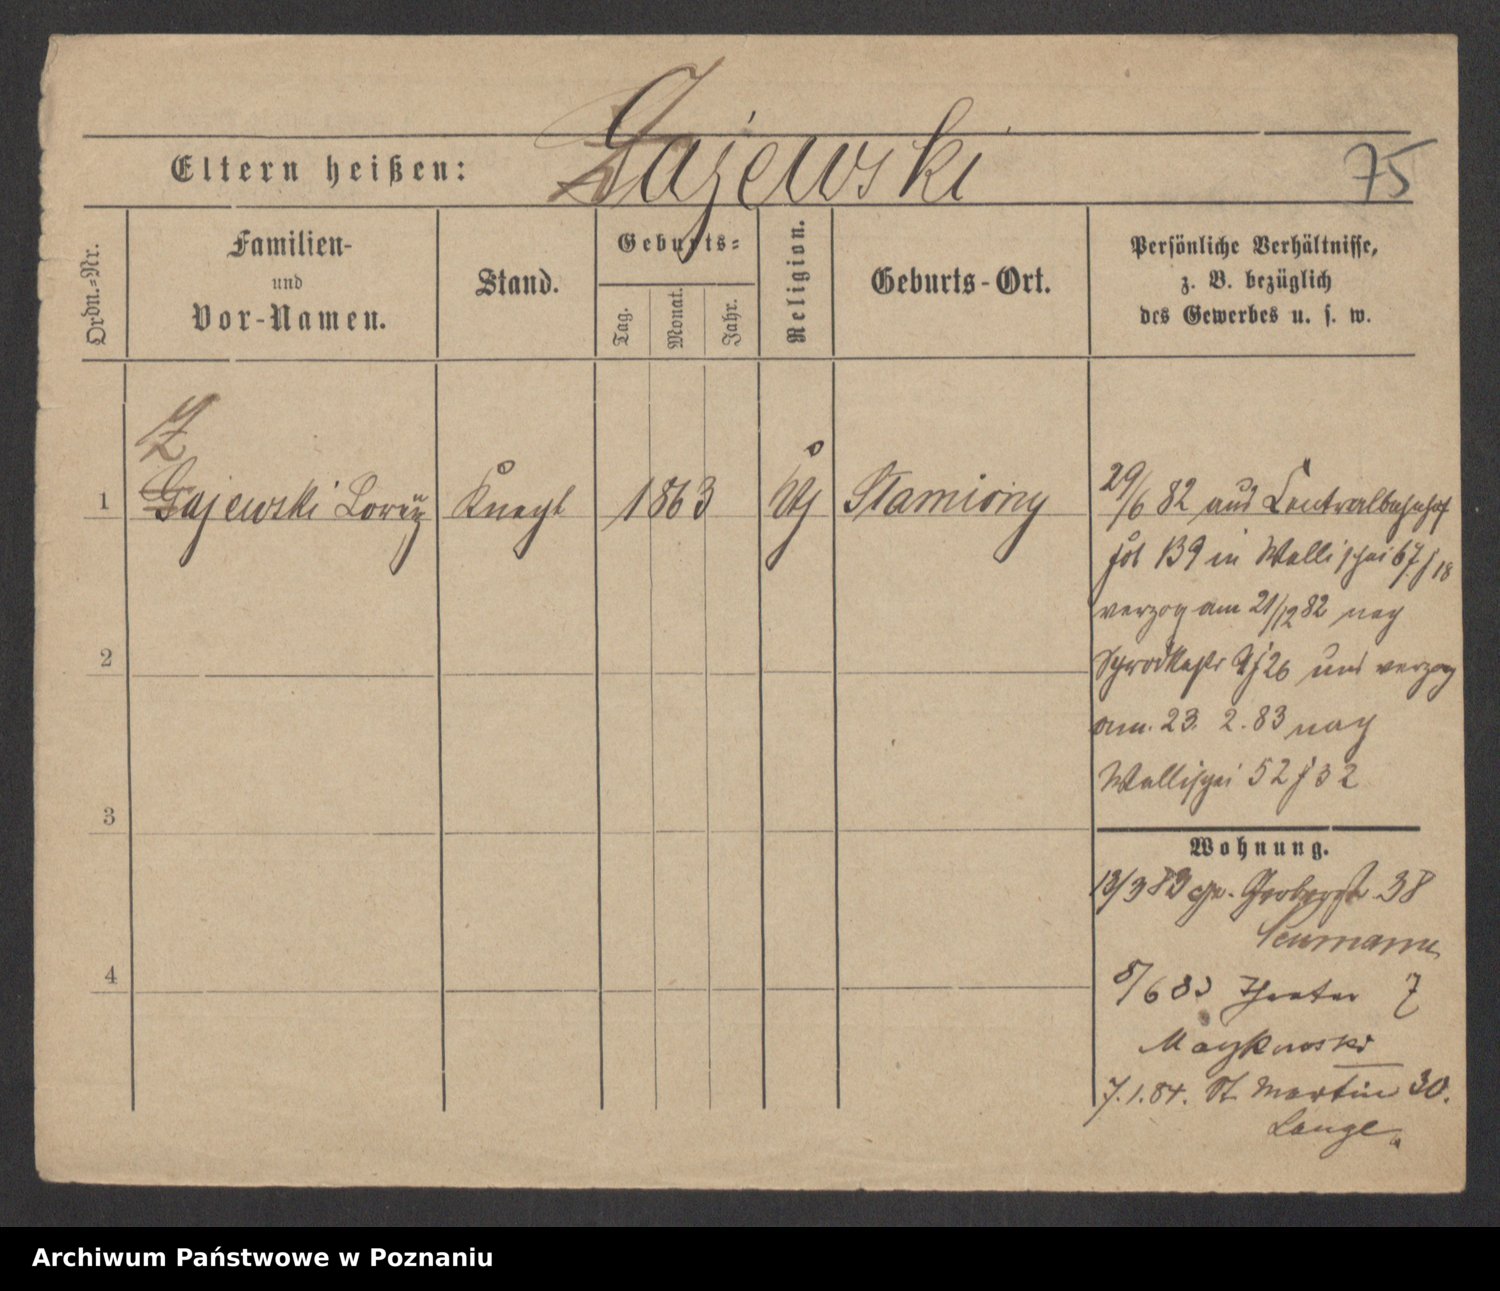 Gajewski
Eltern heißen:
75
Ordn.-Nr.
Familien-
und
Vor-Namen.
Stand.
Geburts-
Tag.
Monat.
Jahr.
Religion.
Geburts-Ort.
Persönliche Verhältnisse,
z. B. bezüglich
des Gewerbes u. s. w.
Z
1 Gajewski Knecht 1863 Stamiony
29/6 82 aus Centralbahnhof
in Wallischei 67
verzog am 21/12 82 nach
26 und verzog
am 23. 2. 83 nach
Wallischei 52 32
2
3
4
Wohnung.
13/3 83 Gerberstr 38
Neumann
8/6 83 Theater 7
7.1.84. St Martin 30.
Lange
Archiwum Państwowe w Poznaniu